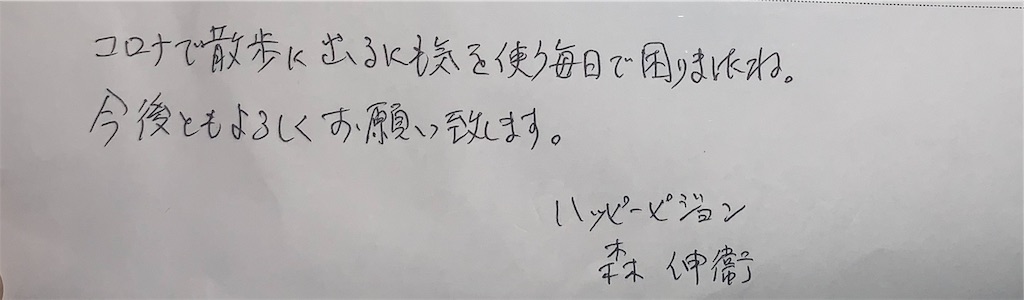 コロナで散歩に出るにも気を使う毎日で困りましたね。
今後ともよろしくお願い致します。
ハッピーピジョン
森 伸衛